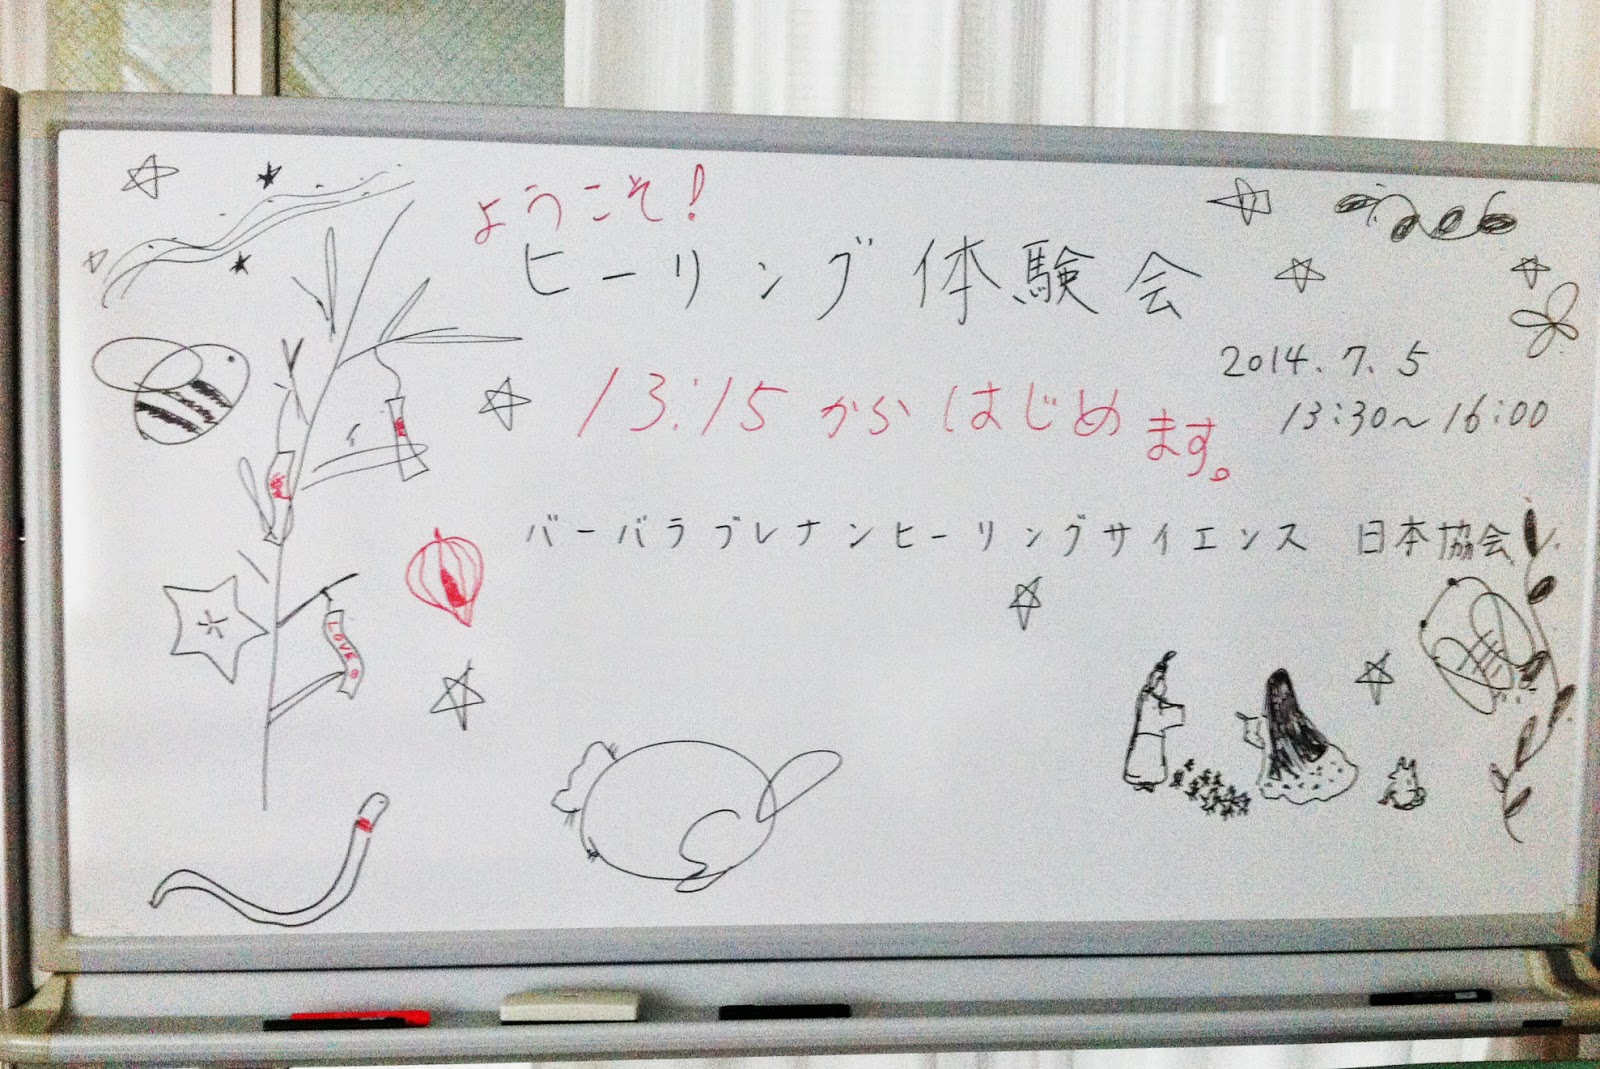 ようこそ!
ヒーリング体験会
2014.7.5
13:15からはじめます。
13:30～16:00
バーバラブレナンヒーリングサイエンス 日本協会
LOVE